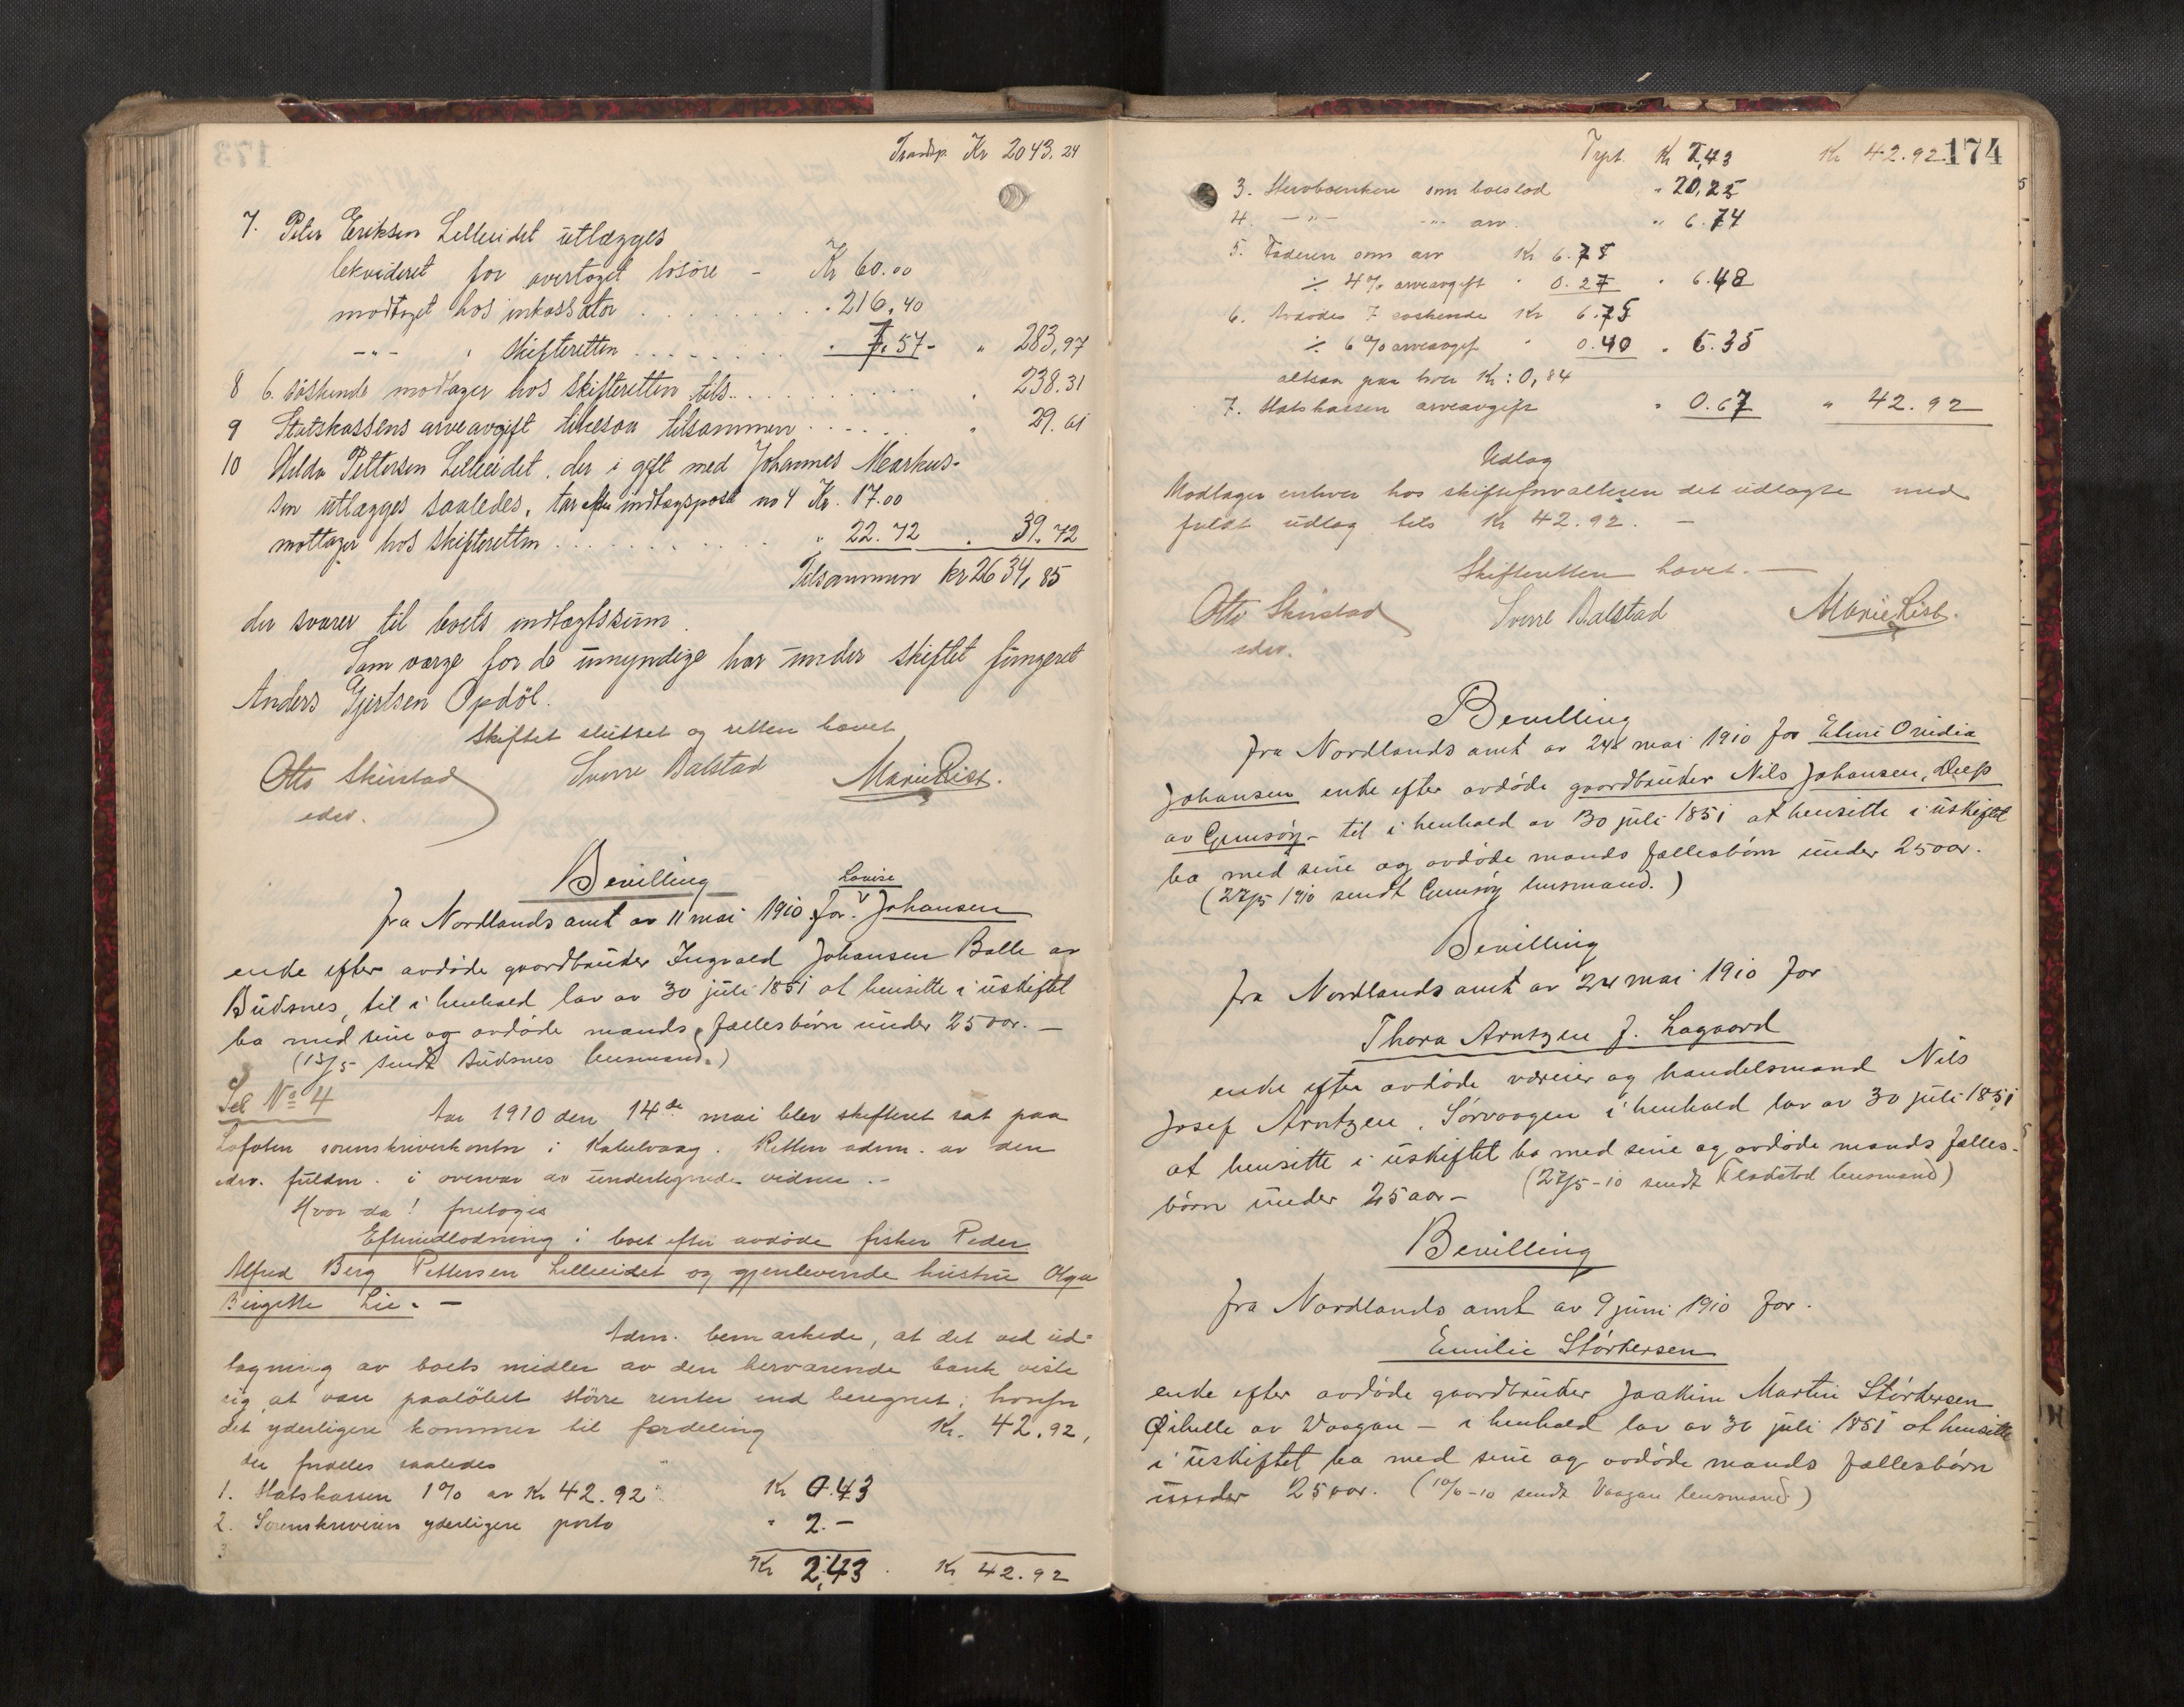 Transp. Kr 2043.24
7. Peter Eriksen Lilleeidet utlægges
lekvideret for overtaget lösöre - Kr 60.00
modtaget hos inkassator . . . . . . . . . " 216.40
-"- " Skifteretten . . . . . . . " 7.57 - " 283,97
8 6 söskende modtager hos skifteretten tils. . . . . . . . . " 238.31
9 Statskassens arveavgift likesaa tilsammen . . . . . " 29.61
10 Hilda Pettersen Lilleeidet, der i gift med Johannes Markus-
sen utlægges saaledes, tar efter indtægspost no 4 Kr. 17.00
mottager hos Skifteretten . . . . . . . . " 22.72 " 39.72
Tilsammen kr 2634,85
der svarer til boets indtægtssum.
Som værge for de umyndige har under skiftet fungeret
Anders Gjertsen Opdöl.
Skiftet sluttet og retten hævet
Otto Skirstad Sverre Balstad Marie Rist.
edsv.
Bevilling
Lovise
fra Nordlands amt av 11 mai 1910 for v Johansen
enke efter avdöde gaardbruker Ingvald Johansen Balle av
Buksnes, til i henhold lov av 30 juli 1851 at hensitte i uskiftet
bo med sine og avdöde mands fællesbörn under 25 aar. -
(13/5 sendt Buksnes lensmand.)
Sel No 4
Aar 1910 den 14de mai blev skifteret sat paa
Lofoten sorenskriverkontor i Kabelvaag. Retten adm. av den
edsv. fuldm. i overvær av undertegnede vidner. -
Hvor da! foretoges
Efterutlodning i boet efter avdöde fisker Peder
Alfred Berg Pettersen Lilleeidet og gjenlevende hustru Olga
Birgitte Lie. -
Adm. bemærkede, at det ved ud-
tagning av boets midler av den herværende bank viste
sig at være paalöbet större renter end beregnet, hvorfor
det yderligere kommer til fordeling Kr. 42.92,
der fordeles saaledes
1. Statskassen 1% av Kr 42.92 Kr 0.43
2. Sorenskriveren yderligere porto " 2.-
3
Kr 2,43 . Kr 42.92
174
Trpt. Kr 2,43 Kr 42.92
3. Stervboenken som boeslod " 20,25
4. -"- -"- arv. " 6.74
5. Faderen som arv Kr 6.75
÷ 4% arveavgift " 0.27 " 6.48
6. Avdödes 7 söskende Kr 6.75
÷ 6% arveavgif " 0.40 " 6.35
altsaa paa hver Kr: 0,84
7. Statskassen arveavgift " 0.67 " 42.92
Udlag
Modtager enhver hos skifteforvalteren det udlagte med
fuldt udlag tils Kr 42.92. -
Skifteretten hævet. -
Otto Skirstad Sverre Balstad Marie Rist.
edsv.
Bevilling
fra Nordlands amt av 24 mai 1910 for Elini Ovidia
Johansen enke efter avdöde gaardbruker Nils Johansen,
av Gimsöy - til i henhold av 30 juli 1851 at hensitte i uskiftet
bo med sine og avdöde mands fællesbörn under 25 aar.
(27/5 1910 sendt Gimsöy lensmand.)
Bevilling
fra Nordlands amt av 24 mai 1910 for
Thora Arntzen f. Lagaard
enke efter avdöde væreier og handelsmand Nils
Josef Arntzen, Sörvaagen i henhold lov av 30 juli 1851
at hensitte i uskiftet bo med sine og avdöde mands fælles-
börn under 25 aar - (27/5-10 sendt Flakstad lensmand)
Bevilling
fra Nordlands amt av 9 juni 1910 for.
Emilie Störkersen
enke efter avdöde gaardbruker Joakim Martin Störkersen
Öihelle av Vaagan - i henhold lov av 30 juli 1851 at hensitte
i uskiftet bo med sine og avdöde mands fællesbörn
under 25 aar. (10/6-10 sendt Vaagan lensmand.)